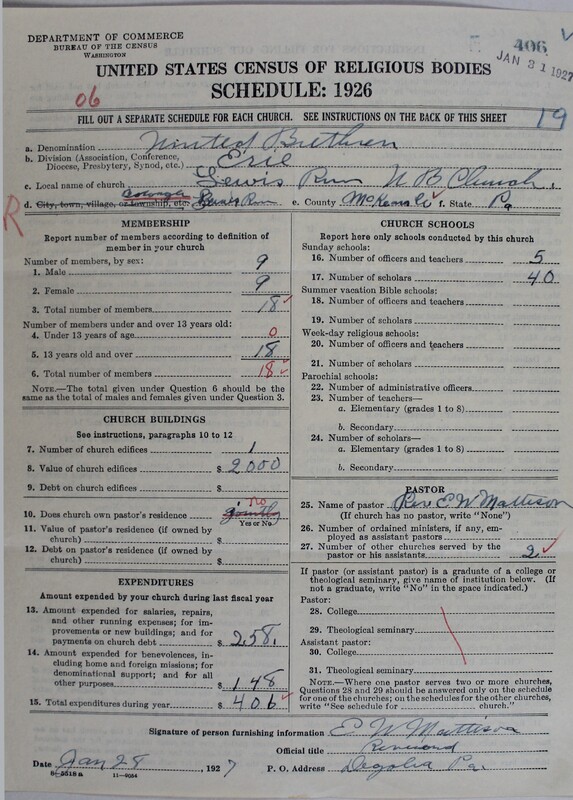 DEPARTMENT OF COMMERCE
BUREAU OF THE CENSUS
WASHINGTON
406
JAN 31 1927
UNITED STATES CENSUS OF RELIGIOUS BODIES
SCHEDULE: 1926
06
FILL OUT A SEPARATE SCHEDULE FOR EACH CHURCH. SEE INSTRUCTIONS ON THE BACK OF THIS SHEET
19
a. Denomination United Brethren
b. Division (Association, Conference, Diocese, Presbytery, Synod, etc.) Erie
c. Local name of church Lewis Run U B Church
R d. City, town, village, or township, etc. Lewis Run e. County McKean f. State Pa
MEMBERSHIP
Report number of members according to definition of member in your church
Number of members, by sex:
1. Male 9
2. Female 9
3. Total number of members 18
Number of members under and over 13 years old:
4. Under 13 years of age 0
5. 13 years old and over 18
6. Total number of members 18
NOTE.—The total given under Question 6 should be the same as the total of males and females given under Question 3.
CHURCH BUILDINGS
See instructions, paragraphs 10 to 12
7. Number of church edifices 1
8. Value of church edifices $ 2000
9. Debt on church edifices $
10. Does church own pastor's residence jointly no
Yes or No
11. Value of pastor's residence (if owned by church) $
12. Debt on pastor's residence (if owned by church) $
EXPENDITURES
Amount expended by your church during last fiscal year
13. Amount expended for salaries, repairs, and other running expenses; for improvements or new buildings; and for payments on church debt $ 258.
14. Amount expended for benevolences, including home and foreign missions; for denominational support; and for all other purposes $ 148
15. Total expenditures during year $ 406
CHURCH SCHOOLS
Report here only schools conducted by this church
Sunday schools:
16. Number of officers and teachers 5
17. Number of scholars 40
Summer vacation Bible schools:
18. Number of officers and teachers
19. Number of scholars
Week-day religious schools:
20. Number of officers and teachers
21. Number of scholars
Parochial schools:
22. Number of administrative officers
23. Number of teachers—
a. Elementary (grades 1 to 8)
b. Secondary
24. Number of scholars—
a. Elementary (grades 1 to 8)
b. Secondary
PASTOR
25. Name of pastor Rev. E W Mattison
(If church has no pastor, write "None")
26. Number of ordained ministers, if any, employed as assistant pastors
27. Number of other churches served by the pastor or his assistants 2
If pastor (or assistant pastor) is a graduate of a college or theological seminary, give name of institution below. (If not a graduate, write "No" in the space indicated.)
Pastor:
28. College
29. Theological seminary
Assistant pastor:
30. College
31. Theological seminary
NOTE.—Where one pastor serves two or more churches, Questions 28 and 29 should be answered only on the schedule for one of the churches; on the schedules for the other churches, write "See schedule for church."
Signature of person furnishing information E W Mattison
Official title Reverend
Date Jan 28, 1927 P. O. Address Degolia Pa.
8—5518 a 11—9084